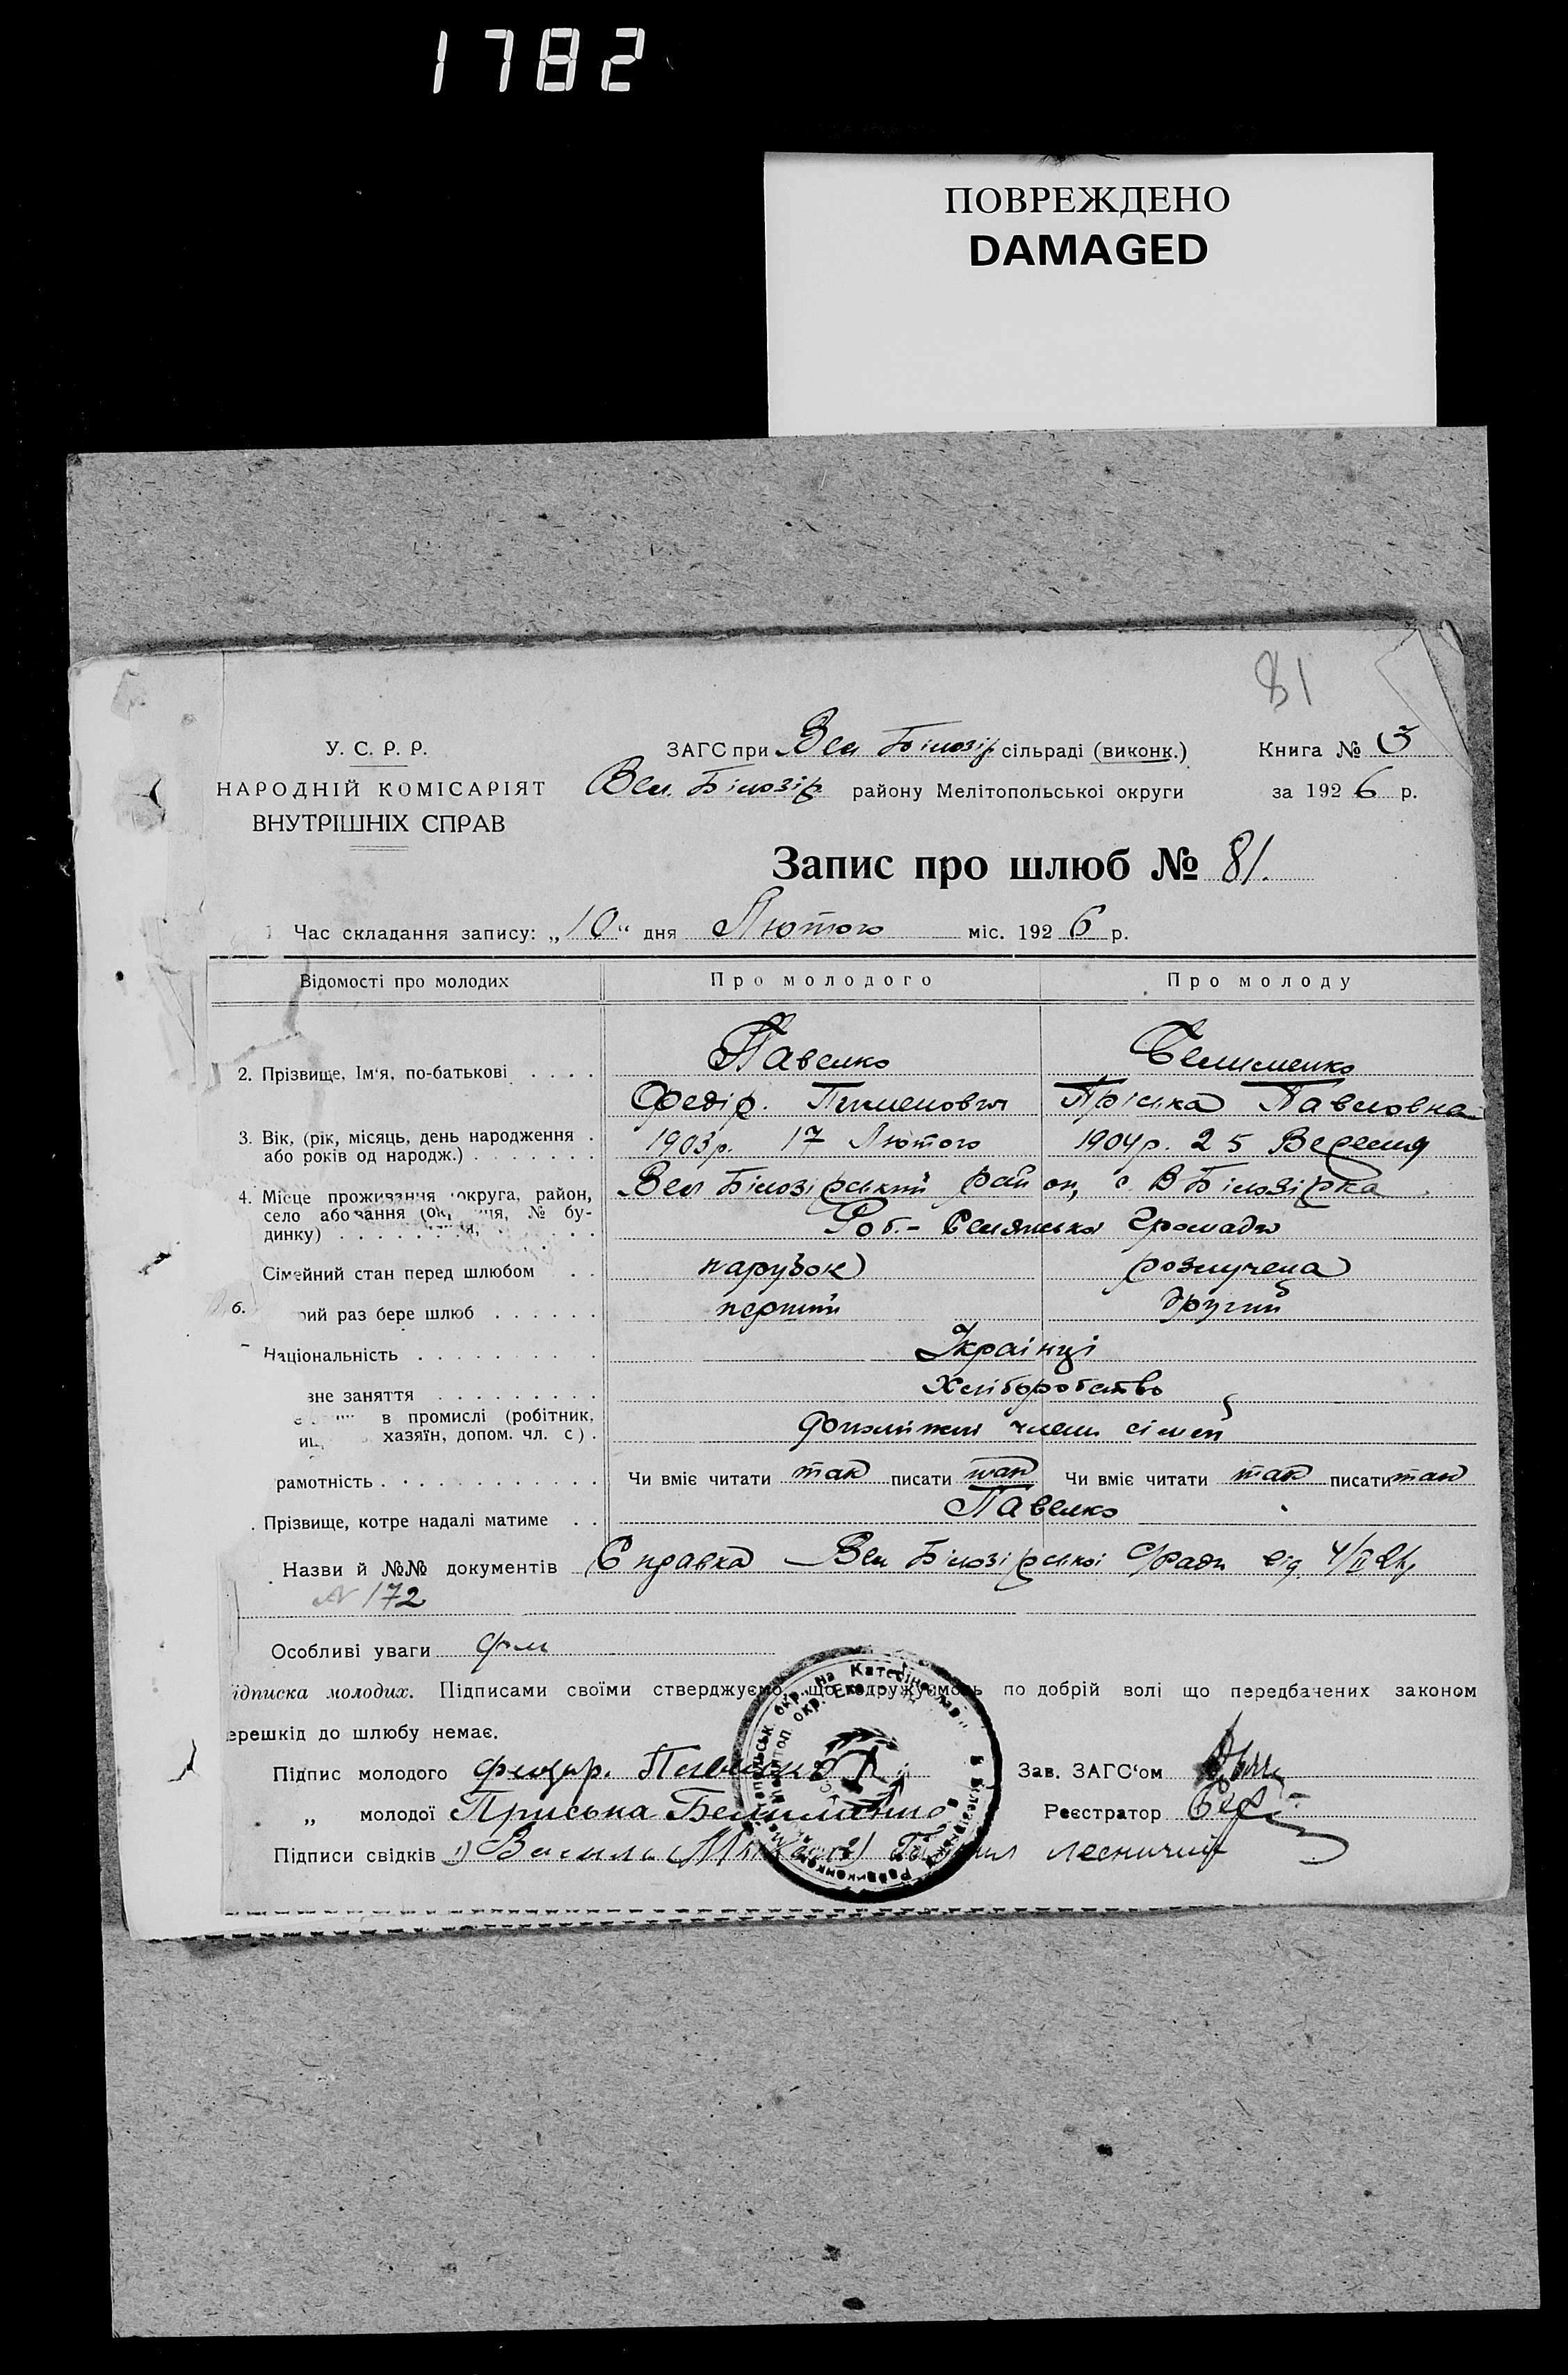 1782
ПОВРЕЖДЕНО
DAMAGED
81
У. С. Р. Р.
НАРОДНІЙ КОМІСАРІЯТ
ВНУТРІШНІХ СПРАВ
ЗАГС при Вел Білозір сільраді (виконк.)
Вел. Білозір району Мелітопольськоі округи
Книга № 3
за 1926 р.
Запис про шлюб № 81.
Час складання запису: „10“ дня Лютого міс. 1926 р.
Відомості про молодих Про молодого Про молоду
2. Прізвище, Ім'я, по-батькові Павелко
Федір. Пименович Пріська Павловна
3. Вік, (рік, місяць, день народження 1903р. 17 Лютого 1904р. 25 Вересня
або років од народж.)
4. Місце проживання округа, район, Вел Білозірський район, с. В Білозірка
село або
№ бу-
динку) Роб.- Селянська Громада
Сімейний стан перед шлюбом парубок розлучена
6. рий раз бере шлюб перший другий
Національність Українці
вне заняття Хліборобство
в промислі (робітник,
хазяїн, допом. чл. с). члени сімей
рамотність Чи вміє читати так писати так Чи вміє читати так писати так
Прізвище, котре надалі матиме Павелко
Назви й №№ документів Справка Вел Білозірськоі с/ради від 4/II 26р
N 172
Особливі уваги
ідписка молодих. Підписами своїми стверджуємо, що одружуємось по добрій волі що передбачених законом
ерешкід до шлюбу немає.
Підпис молодого Павелко
„ молодої Приська
Підписи свідків 1) Василь 2) Лесничий
Зав. ЗАГС'ом
Реєстратор